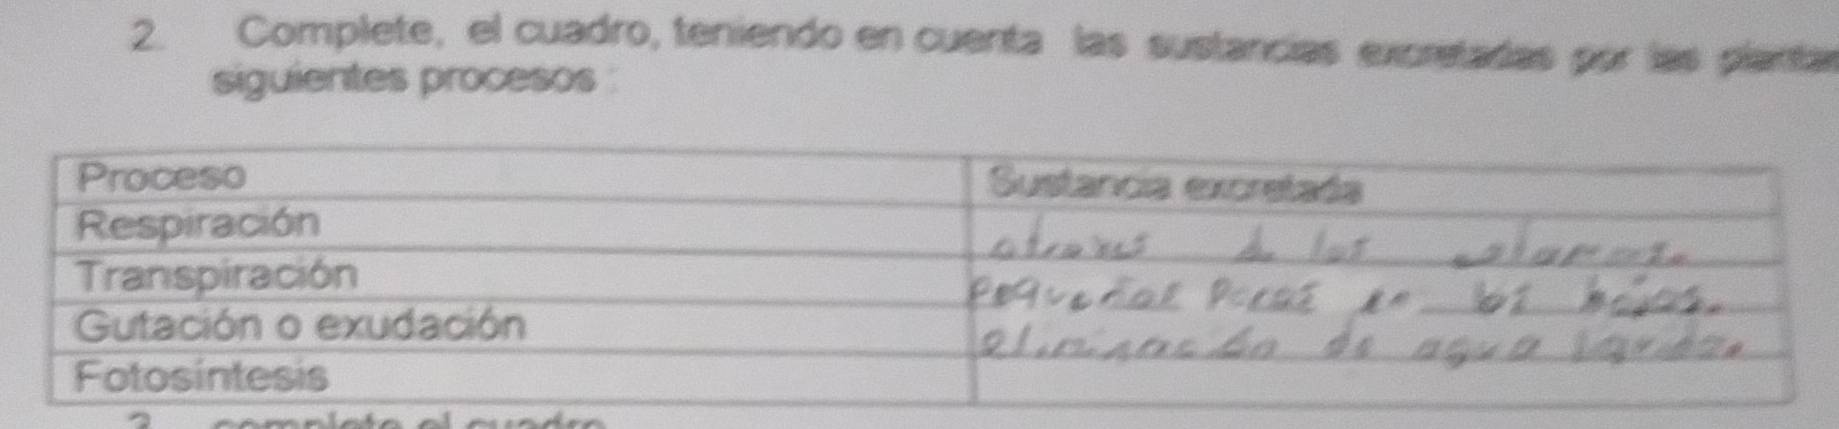 2. Complete, el cuadro, teniendo en cuenta las sustancias excretadas por las plantas
siguientes procesos :
Proceso Sustancia excretada
Respiración atraves de los
Transpiración pequeñas poros en las hojas.
Gutación o exudación eliminación de agua
Fotosíntesis
complete el cuadro